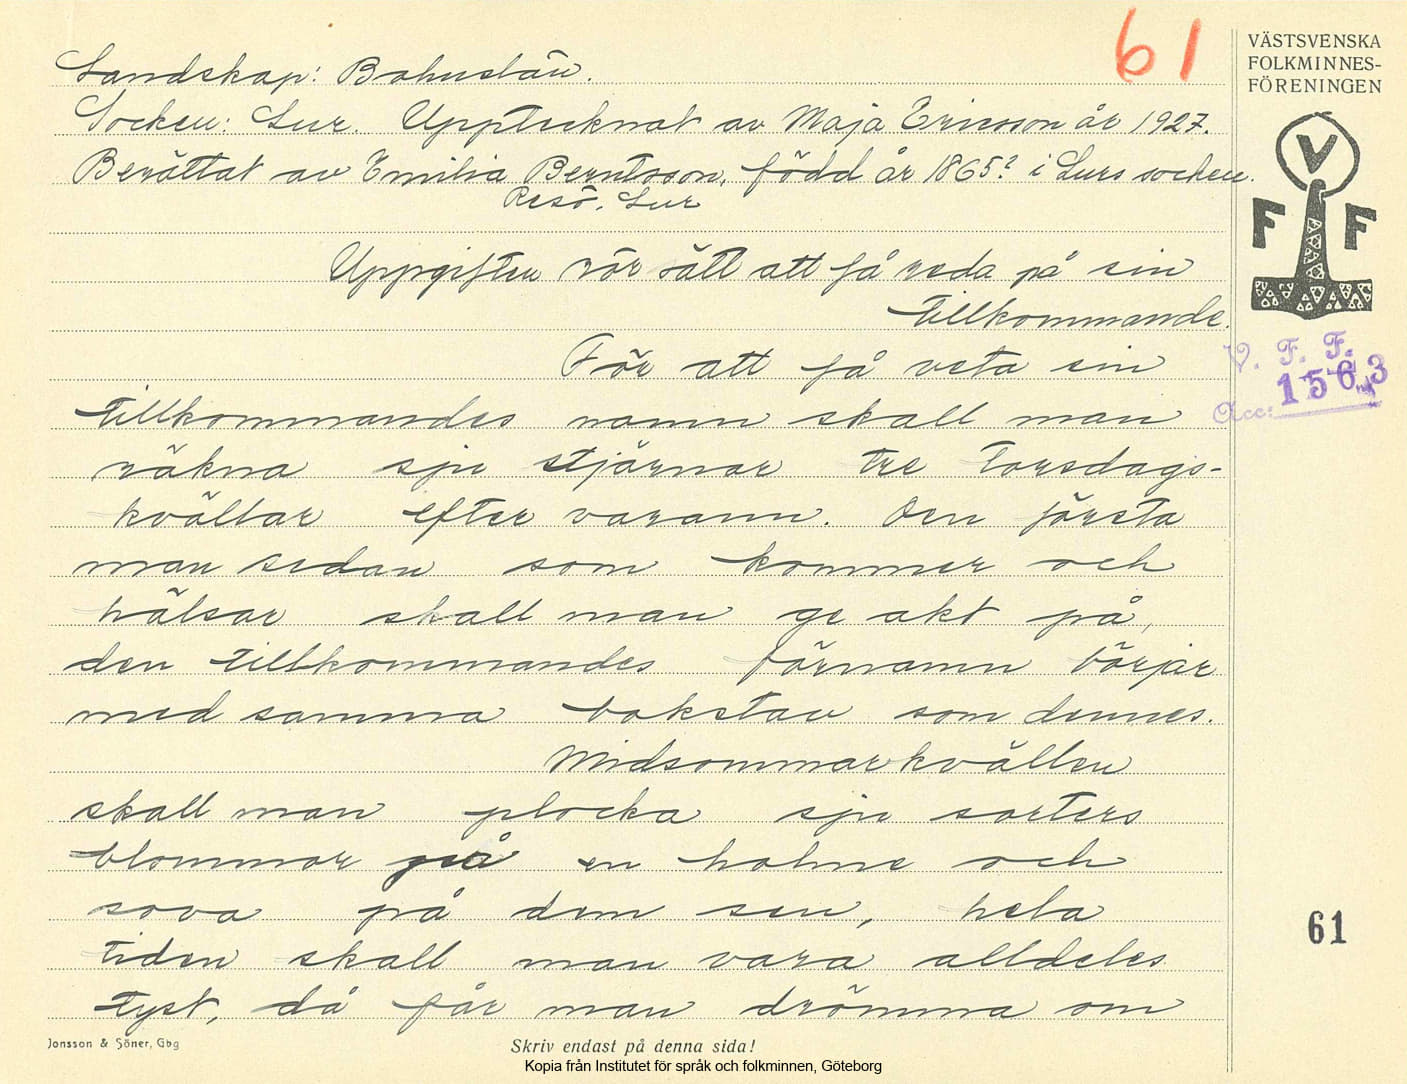 61
VÄSTSVENSKA
FOLKMINNES-
FÖRENINGEN
V
F F
V. F. F.
Acc: 1563
Landskap: Bohuslän.
Socken: Lur. Upptecknat av Maja Ericsson år 1927.
Berättat av Emilia Berntsson, född år 1865? i Lurs socken.
Resö, Lur
Uppgiften rör sätt att få reda på sin
tillkommande.
För att få veta sin
tillkommandes namn skall man
räkna sju stjärnor tre torsdags-
kvällar efter varann. Den första
man sedan som kommer och
hälsar skall man ge akt på,
den tillkommandes förnamn börjar
med samma bokstav som dennes.
Midsommarkvällen
skall man plocka sju sorters
blommor på en holme och
sova på dem sen, hela
tiden skall man vara alldeles
tyst, då får man drömma om
61
Jonsson & Söner, Gbg
Skriv endast på denna sida!
Kopia från Institutet för språk och folkminnen, Göteborg